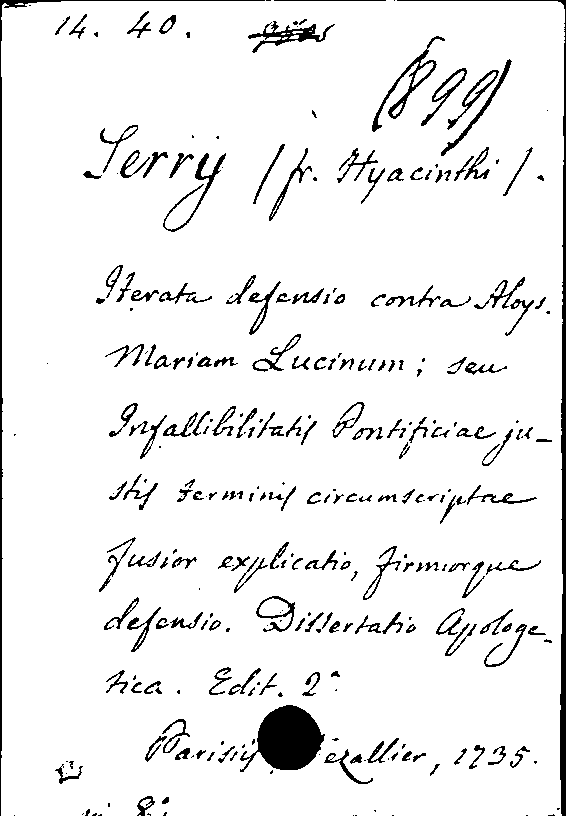 14. 40.
(899)
Serrÿ / fr. Hyacinthi / .
Iterata defensio contra Aloys.
Mariam Lucinum ; seu
Infallibilitatis Pontificiae ju-
stis terminis circumscriptae
fusior explicatio, firmiorque
defensio. Dissertatio Apologe-
tica. Edit. 2ª
Parisiis, ezallier, 1735.